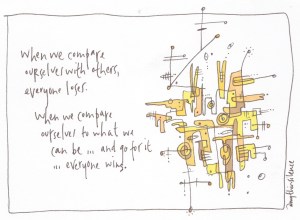 When we compare
ourselves with others,
everyone loses.
When we compare
ourselves to what we
can be ... and go for it
... everyone wins.